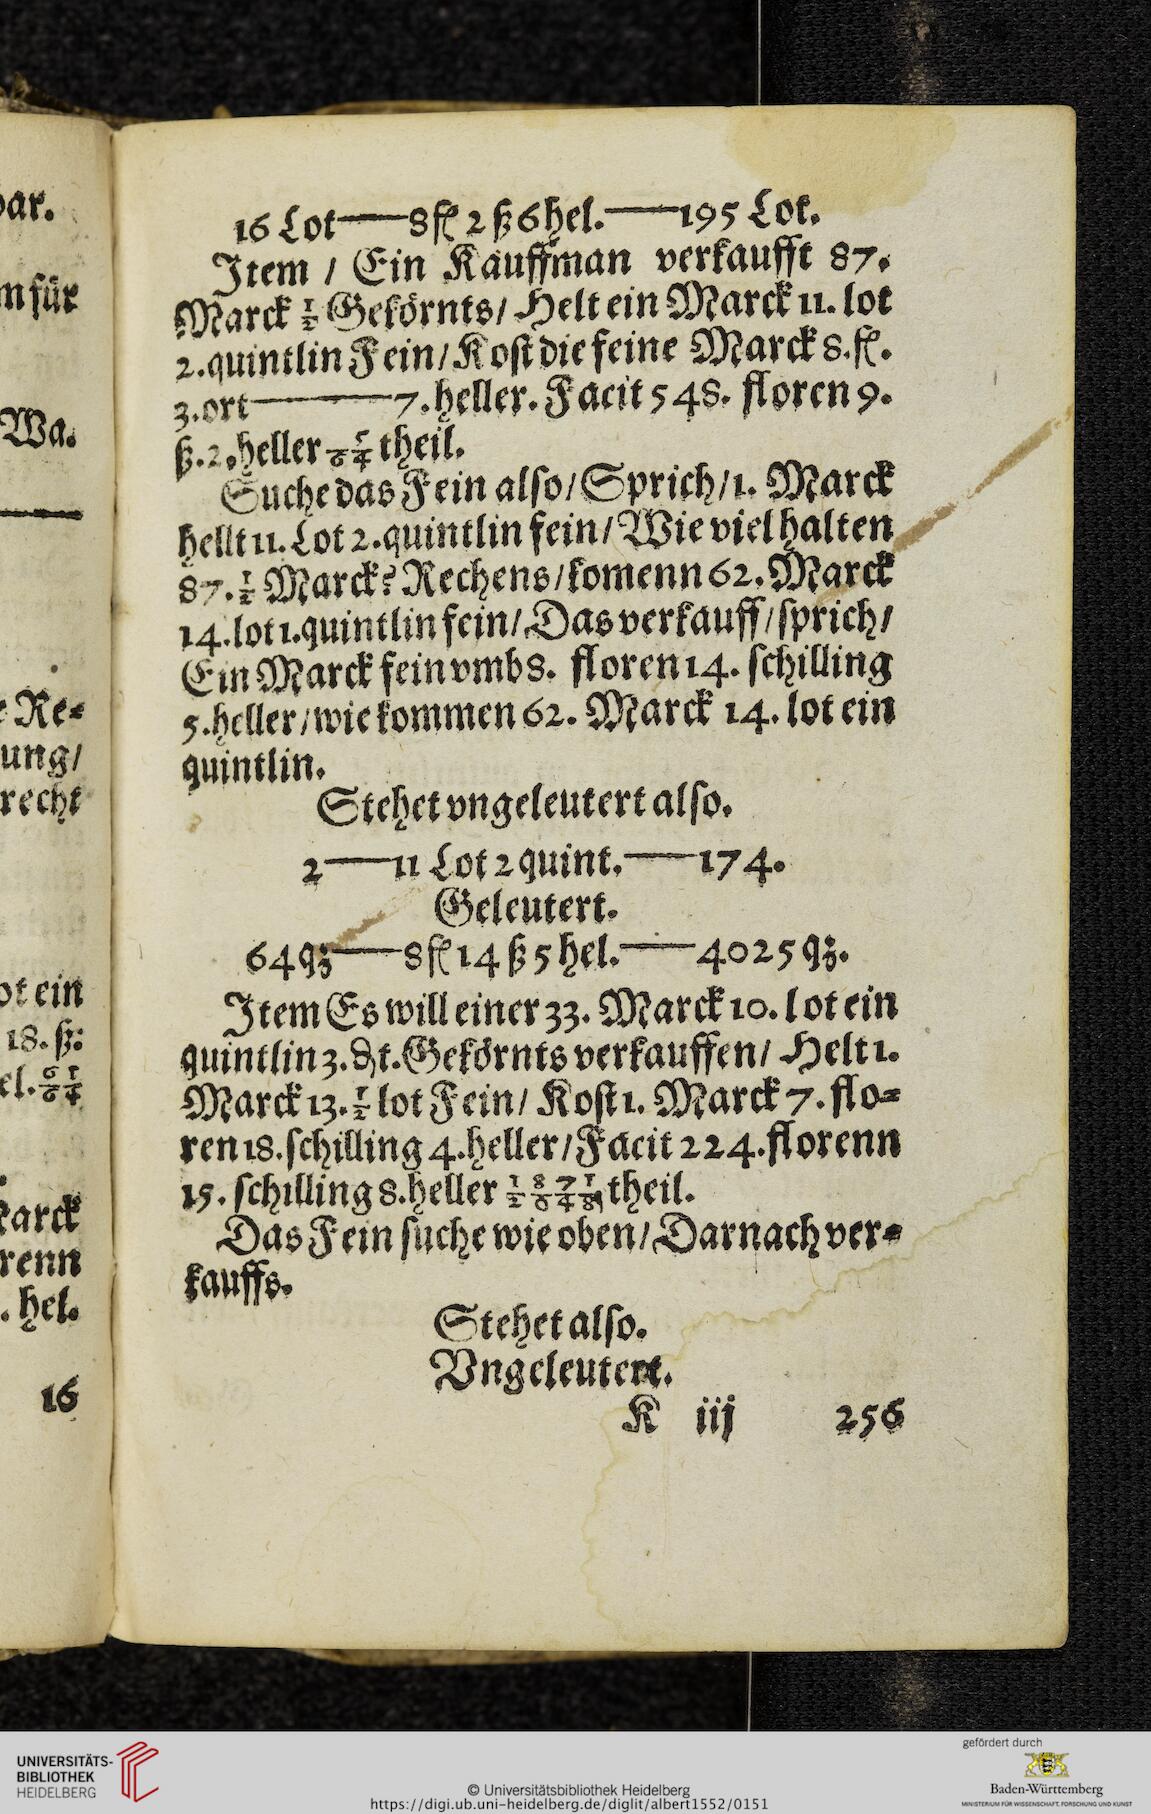 16 Lot——8 fl 2 ß 6 hel.——195 Lot.
Item / Ein Kauffman verkaufft 87.
Marck ½ Gekörnts / Helt ein Marck 11. lot
2. quintlin Fein / Kost die feine Marck 8. fl.
3. ort———7. heller. Facit 548. floren 9.
ß. 2. heller 5/64 theil.
Suche das Fein also / Sprich / 1. Marck
hellt 11. Lot 2. quintlin fein / Wie viel halten
87. ½ Marck? Rechens / komenn 62. Marck
14. lot 1. quintlin fein / Das verkauff / sprich /
Ein Marck fein vmb 8. floren 14. schilling
5. heller / wie kommen 62. Marck 14. lot ein
quintlin.
Stehet vngeleutert also.
2——11 Lot 2 quint.——174.
Geleutert.
64 qz——8 fl 14 ß 5 hel.——4025 qz.
Item Es will einer 33. Marck 10. lot ein
quintlin 3. Gekörnts verkauffen / Helt 1.
Marck 13. ½ lot Fein / Kost 1. Marck 7. flo=
ren 18. schilling 4. heller / Facit 224. florenn
15. schilling 8. heller theil.
Das Fein suche wie oben / Darnach ver=
kauffs.
Stehet also.
Vngeleutert.
K iij 256
m für
Wa.
Re=
ung /
recht
ein
18. ß.
renn
. hel.
16
UNIVERSITÄTS-
BIBLIOTHEK
HEIDELBERG
© Universitätsbibliothek Heidelberg
https://digi.ub.uni-heidelberg.de/diglit/albert1552/0151
gefördert durch
Baden-Württemberg
MINISTERIUM FÜR WISSENSCHAFT, FORSCHUNG UND KUNST